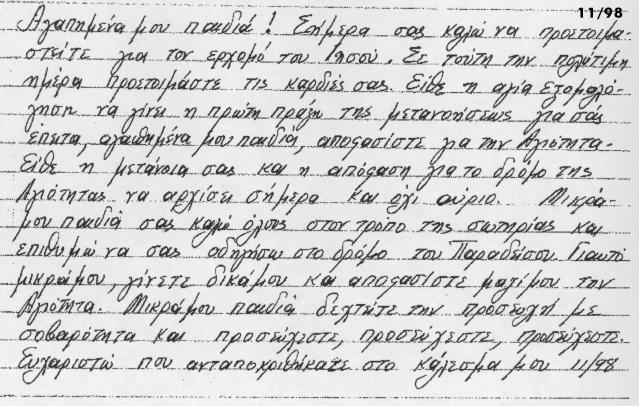 11/98
Αγαπημένα μου παιδιά! Σήμερα σας καλώ να προετοιμα-
στείτε για τον ερχομό του Ιησού. Σε τούτη την πολύτιμη
ημέρα προετοιμάστε τις καρδιές σας. Είθε η αγία εξομολό-
γηση να γίνει η πρώτη πράξη της μετανοήσεως για σάς
έπειτα, αγαπημένα μου παιδιά, αποφασίστε για την Αγιότητα.
Είθε η μετάνοια σας και η απόφαση για το δρόμο της
Αγιότητας να αρχίσει σήμερα και όχι αύριο. Μικρά-
μου παιδιά σας καλώ όλους στον τρόπο της σωτηρίας και
επιθυμώ να σας οδηγήσω στο δρόμο του Παραδείσου. Γιαυτό
μικράμου, γίνετε δικάμου και αποφασίστε μαζίμου την
Αγιότητα. Μικράμου παιδιά δεχτείτε την προσευχή με
σοβαρότητα και προσεύχεστε, προσεύχεστε, προσεύχεστε.
Ευχαριστώ που ανταποκριθήκατε στο κάλεσμα μου 11/98